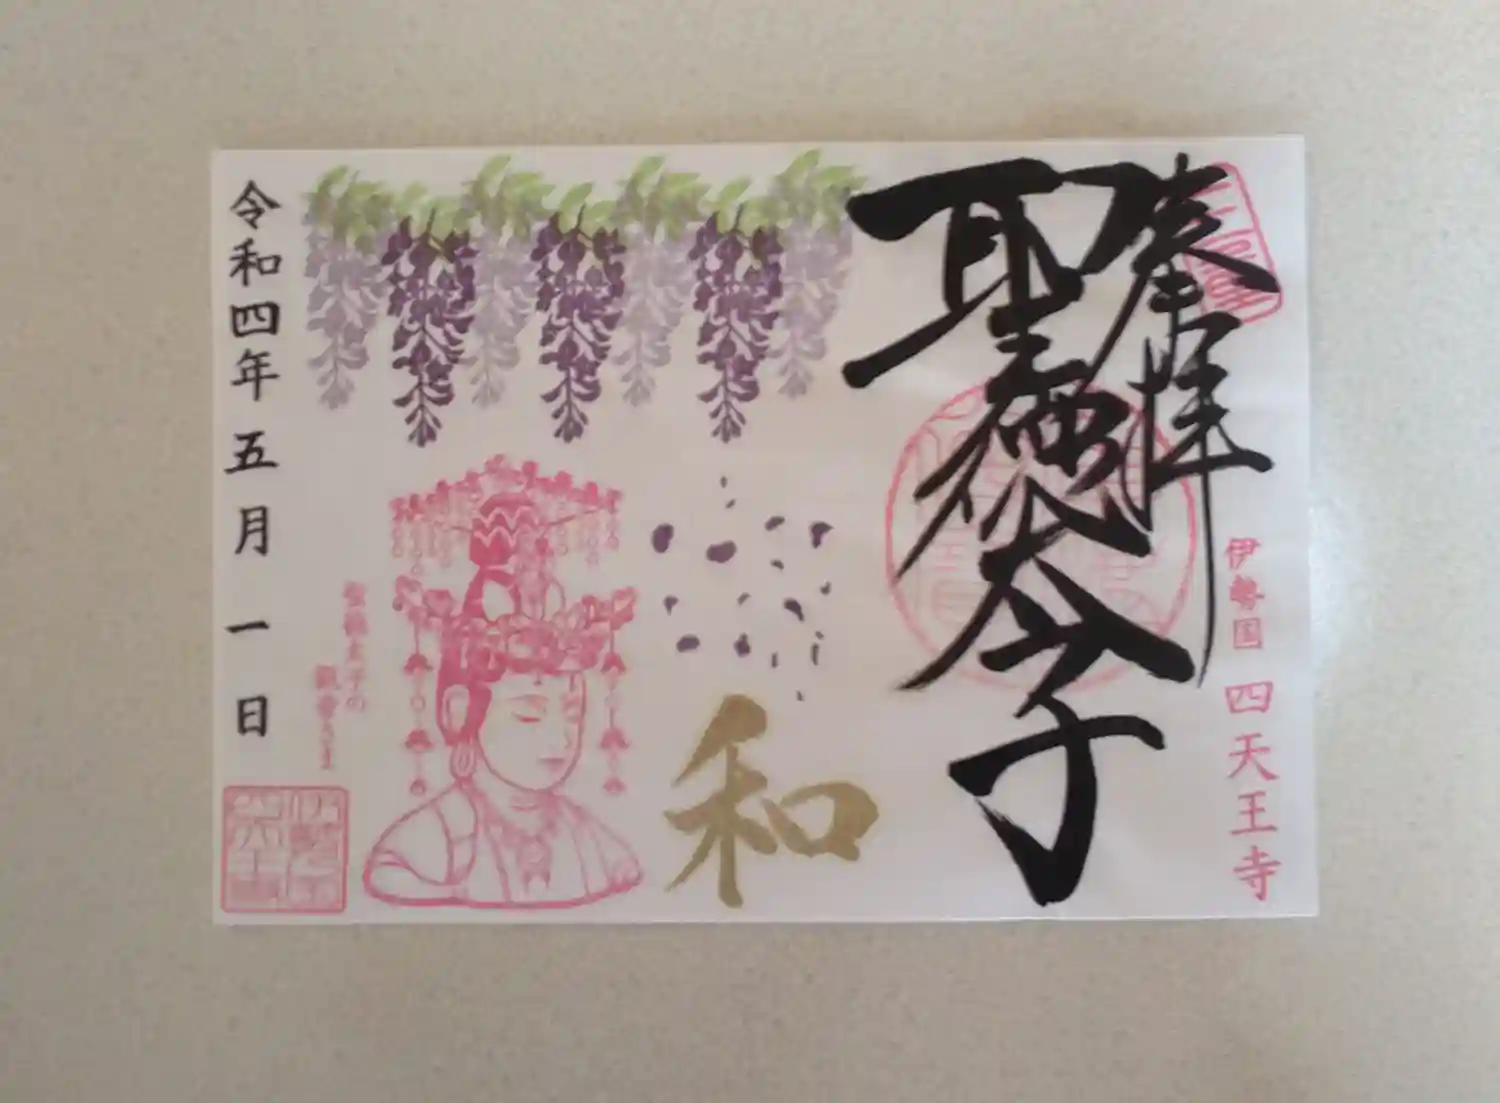 奉拝
聖徳太子
伊勢国 四天王寺
和
聖徳太子の
観音さま
令和四年五月一日